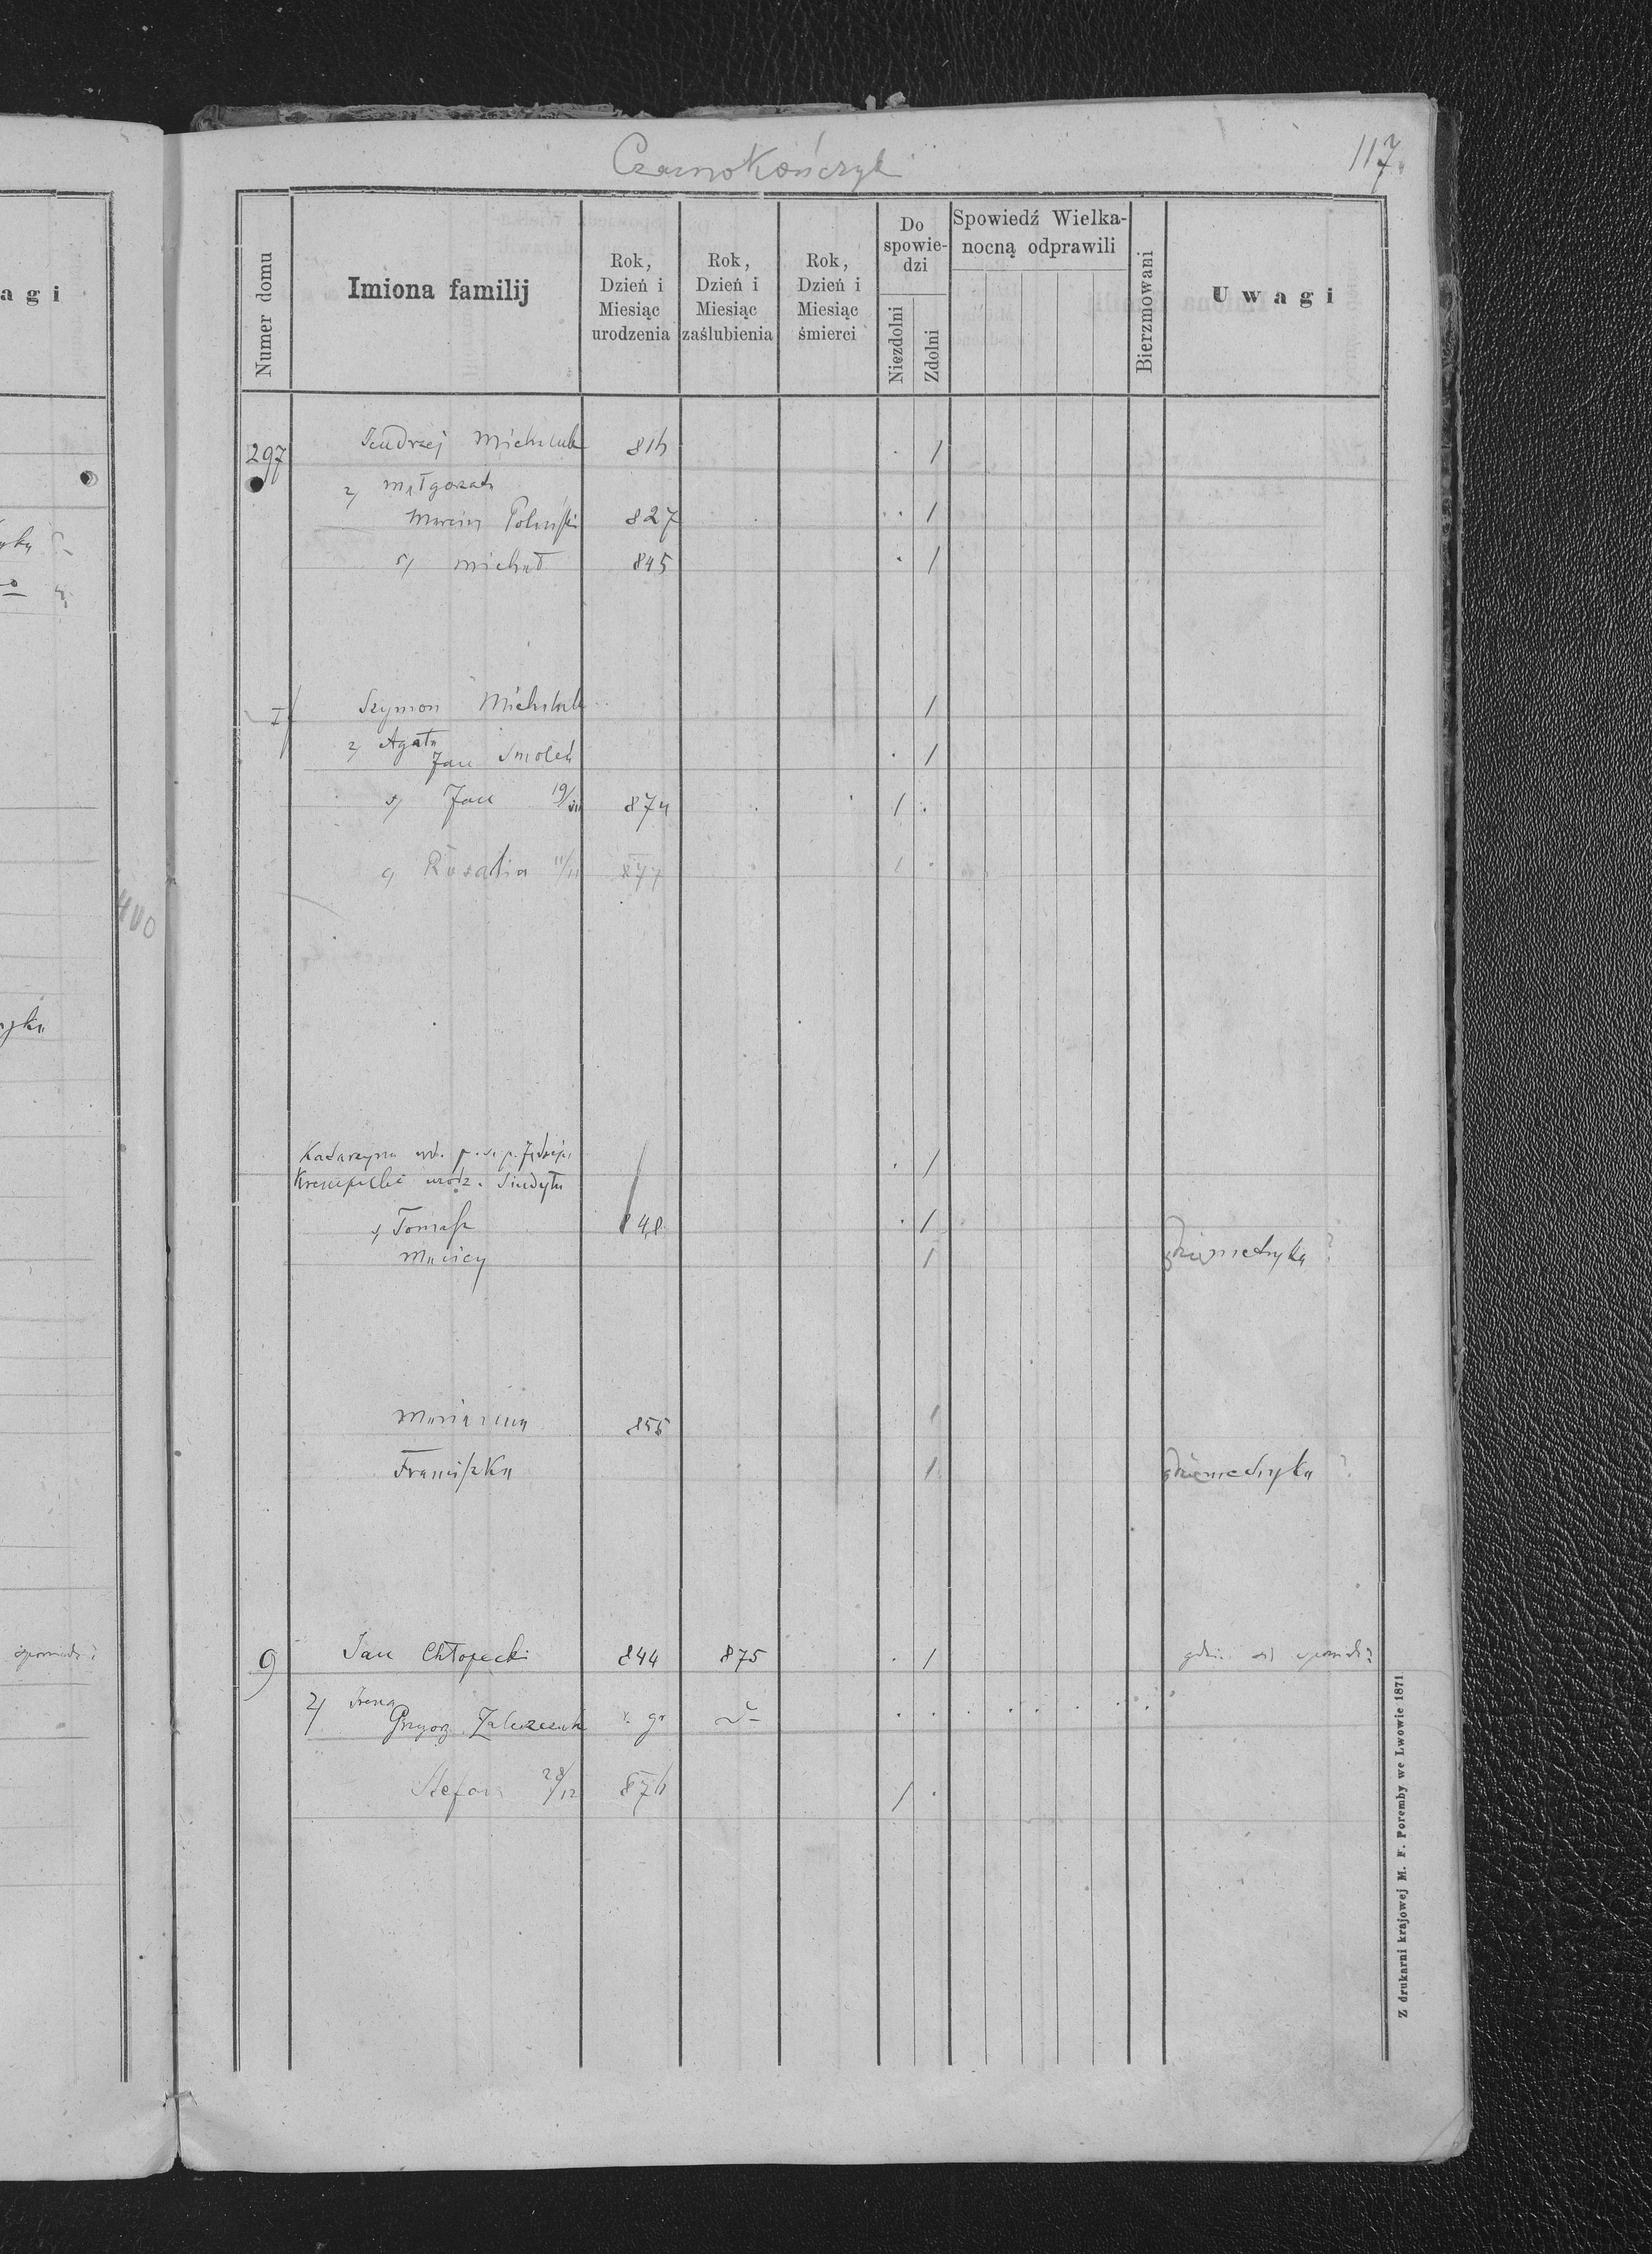 agi
400
spowiada?
Czarnokończyk
117.
Numer domu
Imiona familij
Rok, Dzień i Miesiąc urodzenia
Rok, Dzień i Miesiąc zaślubienia
Rok, Dzień i Miesiąc śmierci
Do spowiedzi
Niezdolni
Zdolni
Spowiedź Wielkanocną odprawili
Bierzmowani
Uwagi
297 Jendrzej Michaluk 816 . /
2) Małgorzata
Marcin 827 . . /
5) Michał 845 . /
I/ Szymon Michaluk /
2) Agata
Jan Smolek . /
Jan 19/ 874 / .
Rozalia 11/11 877 / .
Katarzyna . /
urodz.
Tomasz 848 . /
Maciej / gdzie metryka?
Marianna 855 /
Franciszka / gdzie metryka?
9 Jan Chłopecki 844 875 . / gdzie się spowiada?
2) Irena
Grzyorz r. gr
Stefan 28/12 876 / .
Z drukarni krajowej M. F. Poremby we Lwowie 1871